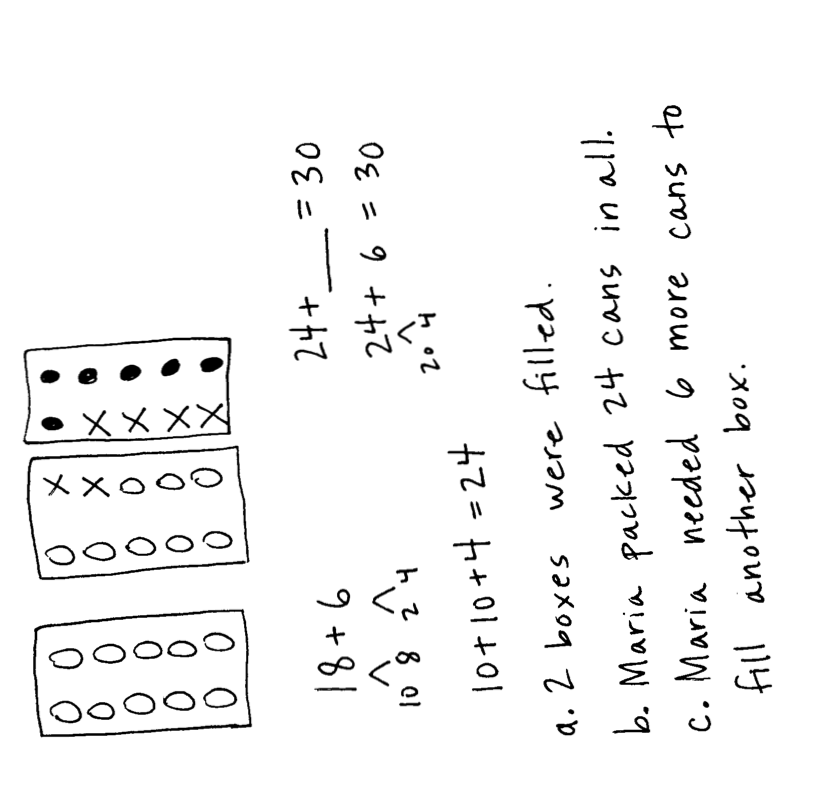 18 + 6
10 8 2 4
10 + 10 + 4 = 24
24 + ___ = 30
24 + 6 = 30
20 4
a. 2 boxes were filled.
b. Maria packed 24 cans in all.
c. Maria needed 6 more cans to
fill another box.